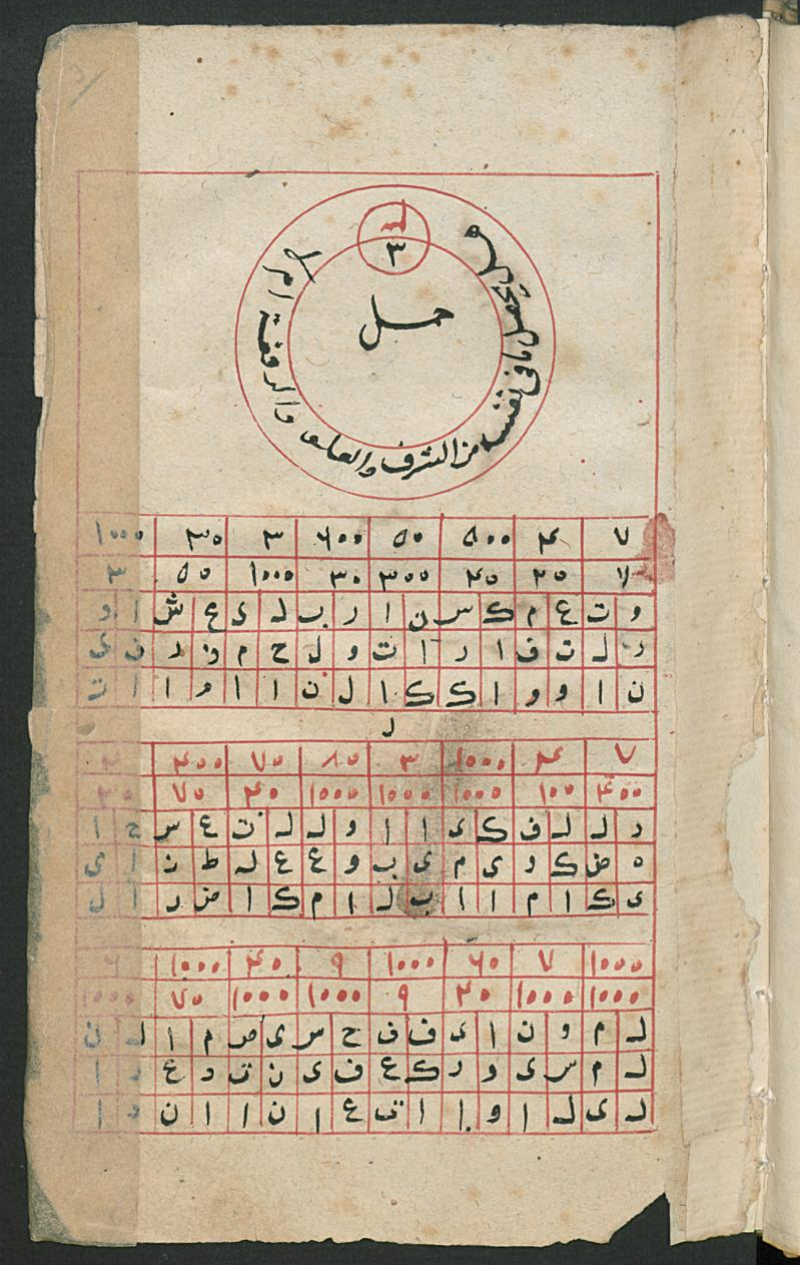 ٣
حمل
من الشرف والعلو والرفعة
٧ ٤ ٥٠٠ ٥٠ ٦٠٠ ٣ ٣٠ ١٠٠٠
٧ ٢٠ ٤٠ ٣٠٠ ٣٠ ١٠٠٠ ٥٠ ٣
و ت ع م ك س ن ا ر ب ل ى ع ش ا و
ر ل ت ف ا ر ا ت و ل ح م ن ر ن ى
ن ا و و ا ك ك ا ل ن ا ا و ا ا ت
ل
٧ ٤ ١٠٠٠ ٣ ٨٠ ٧٠ ٤٠٠
٤٠٠ ١٠٠ ١٠٠٠ ١٠٠٠ ١٠٠٠ ٤٠ ٧٠ ٣٠
ر ل ل ف ك ى ا ا و ل ل ت ع س ح ا
ه ض ك ر ى م ى ب و ع ع ل ط ن ا ى
ى ك ا م ا ا ب ل ا م ك ا ض ر ا ل
١٠٠٠ ٧ ٦٠ ١٠٠٠ ٩ ٤٠ ١٠٠٠ ٦
١٠٠٠ ١٠٠٠ ٣٠ ٩ ١٠٠٠ ١٠٠٠ ٧٠ ١٠٠٠
ل م و ن ا ى ف ف ح س ى ص م ا ل ن
ل م س ى و ر ك ع ف ى ن ت د ع ر ا
ل ى ل ا و ا ا ت ع ا ن ا ا ن د ا